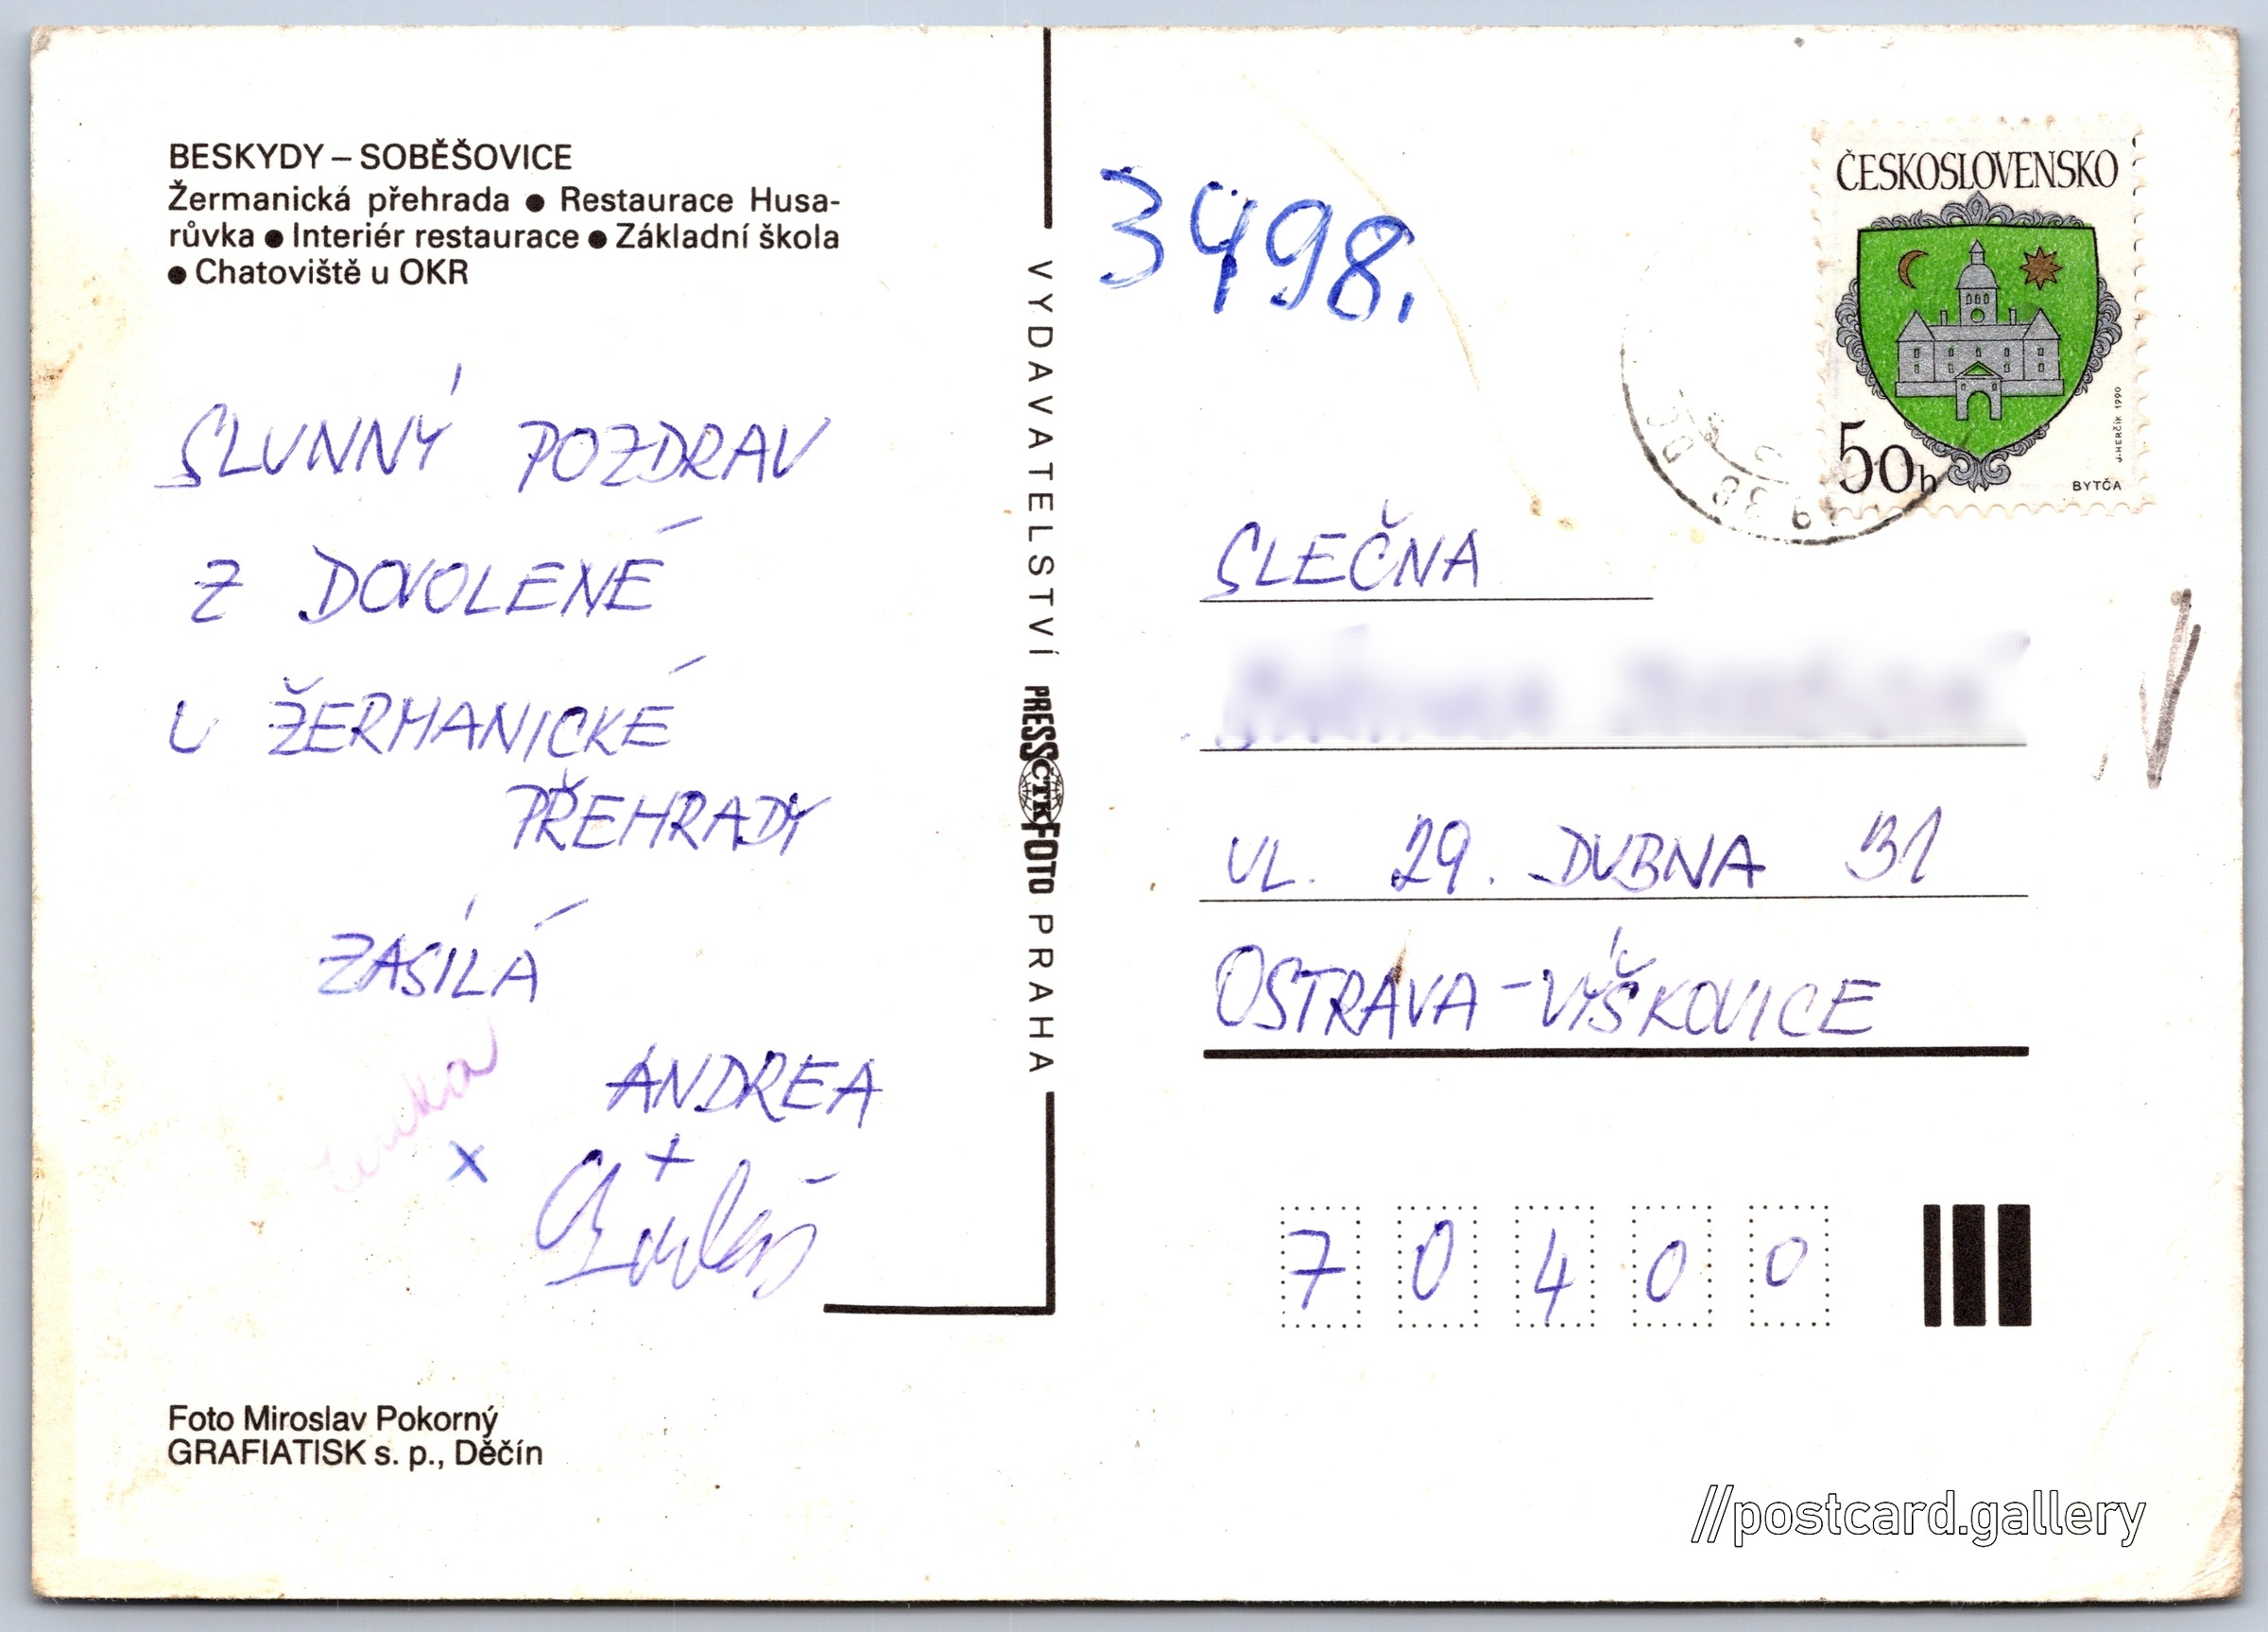 BESKYDY – SOBĚŠOVICE
Žermanická přehrada ● Restaurace Husa-
růvka ● Interiér restaurace ● Základní škola
● Chatoviště u OKR
SLUNNÝ POZDRAV
Z DOVOLENÉ
U ŽERMANICKÉ
PŘEHRADY
ZASÍLÁ
ANDREA
+
x
Foto Miroslav Pokorný
GRAFIATISK s. p., Děčín
VYDAVATELSTVÍ PRESSFOTO PRAHA
ČTK
3498.
ČESKOSLOVENSKO
50h
BYTČA
J. HERČÍK 1990
SLEČNA
UL. 29. DUBNA 31
OSTRAVA-VÝŠKOVICE
70400
//postcard.gallery